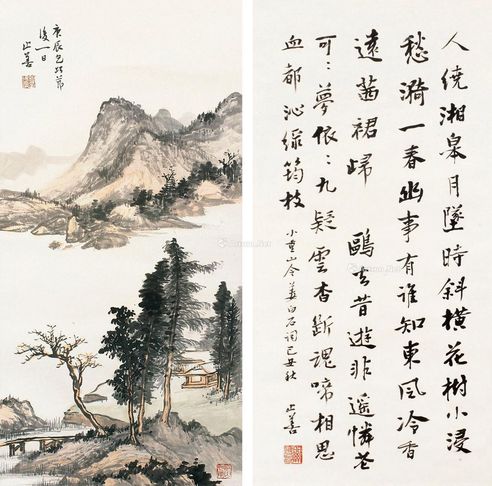 庚辰乞巧節
後一日
止善
人繞湘皋月墜時斜橫花樹小浸
愁漪一春幽事有誰知東風冷香
遠茜裙歸 鷗去昔遊非遙憐花
可：夢依：九疑雲杳斷魂啼相思
血都沁綠筠枝
小重山令姜白石詞己丑秋 止善